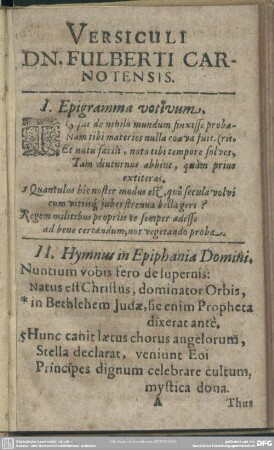 VERSICULI
DN. FULBERTI CAR-
NOTENSIS.
I. Epigramma votivum.
TE, qui de nihilo mundum finxisse proba-
Nam tibi materies nulla coæva fuit. (ris
Et nutu facili, noto tibi tempore solves,
Tam diuturnus abhinc, quàm prius
extiteras.
5 Quantulus hic noster modus est, quò secula volvi
cum vitiisq́ jubes strenna bella geri?
Regem militibus propriis te semper adesse
ad bene certandum, nos vegetando proba.
II. Hymnus in Epiphania Domini.
Nuntium vobis fero de supernis:
Natus est Christus, dominator Orbis,
* in Bethlehem Judæ, sic enim Propheta
dixerat antè.
5 Hunc canit lætus chorus angelorum,
Stella declarat, veniunt Eoi
Principes dignum celebrare cultum,
mystica dona.
A Thus